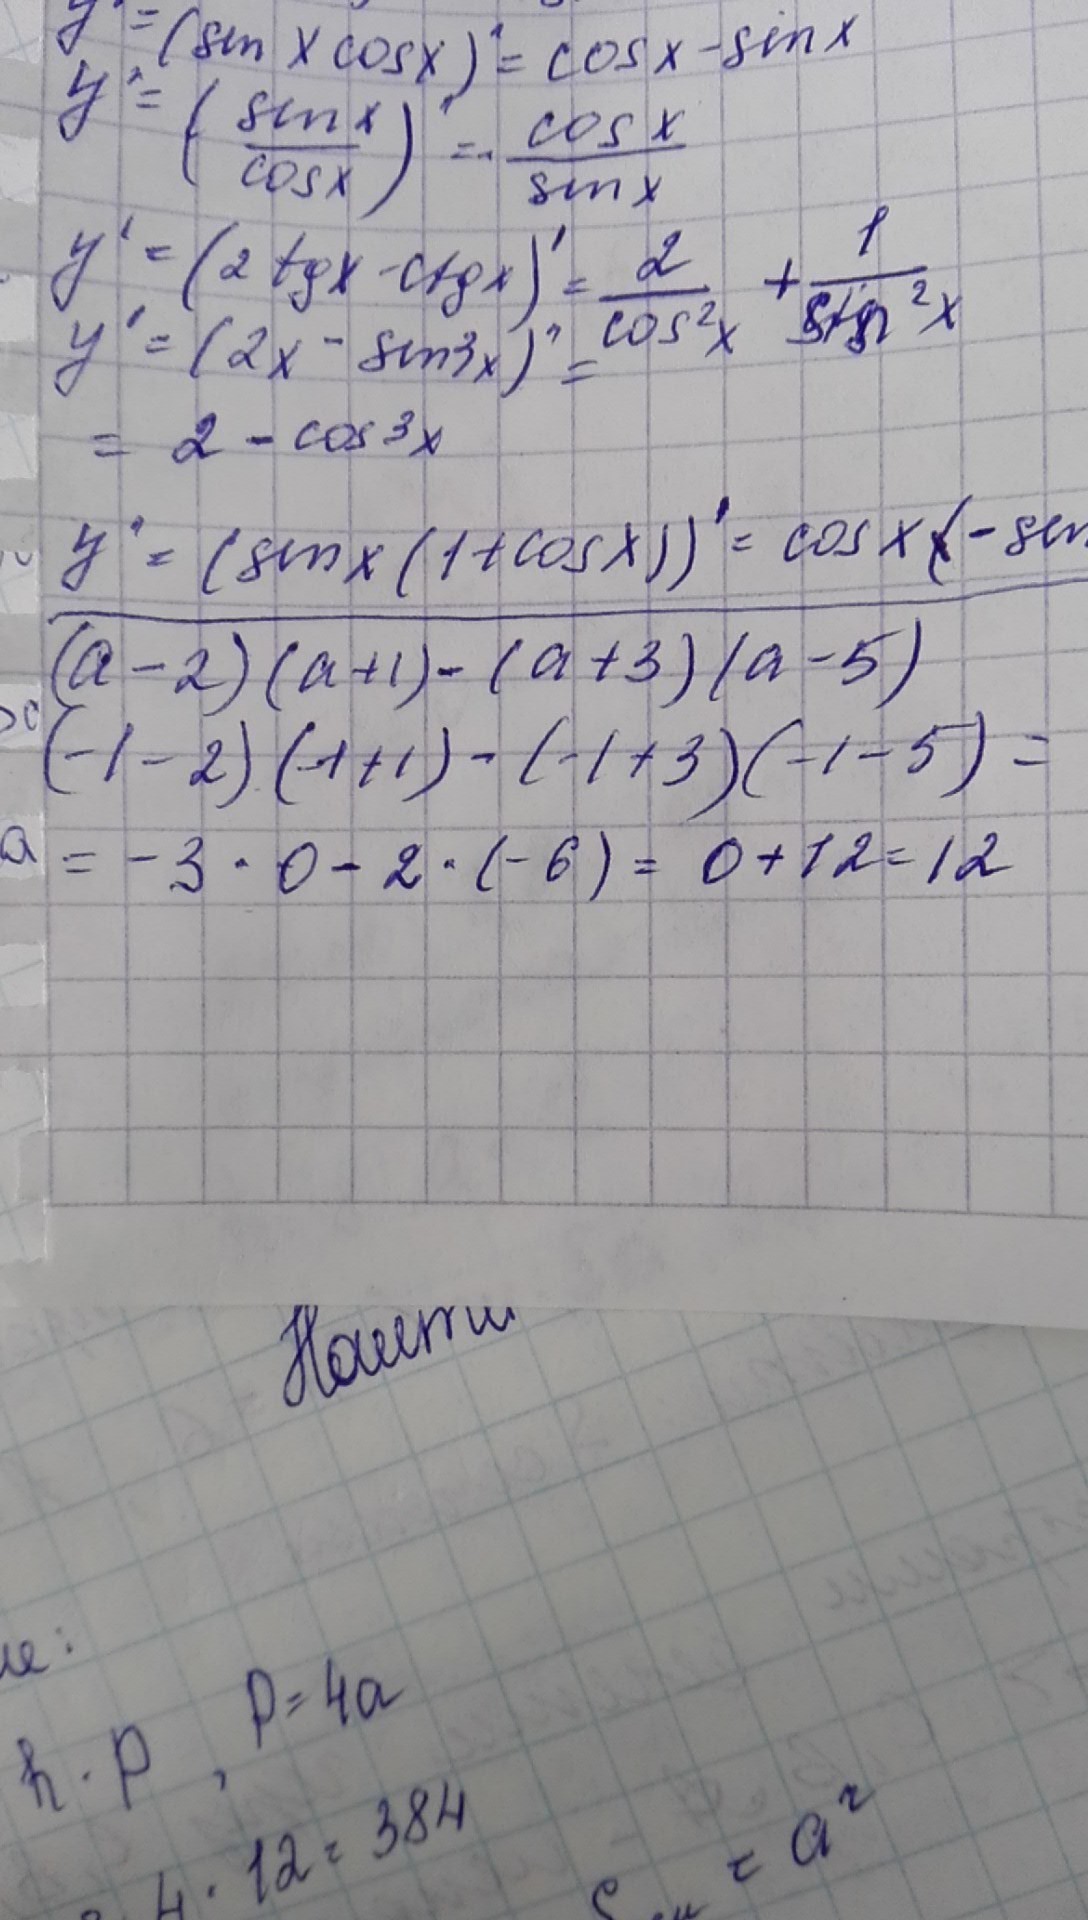 y' = (sin x cos x)' = cos x - sin x
y' = (sin x / cos x)' = - cos x / sin x
y' = (2 tg x - ctg x)' = 2 / cos² x + 1 / x
y' = (2x - sin 3x)' =
= 2 - cos 3x
y' = (sin x (1 + cos x))' = cos x (- sin
(a - 2)(a + 1) - (a + 3)(a - 5)
(-1 - 2)(-1 + 1) - (-1 + 3)(-1 - 5) =
a
= -3 · 0 - 2 · (-6) = 0 + 12 = 12
Найти
ие:
h · P , P = 4a
4 · 12 = 384
= a²